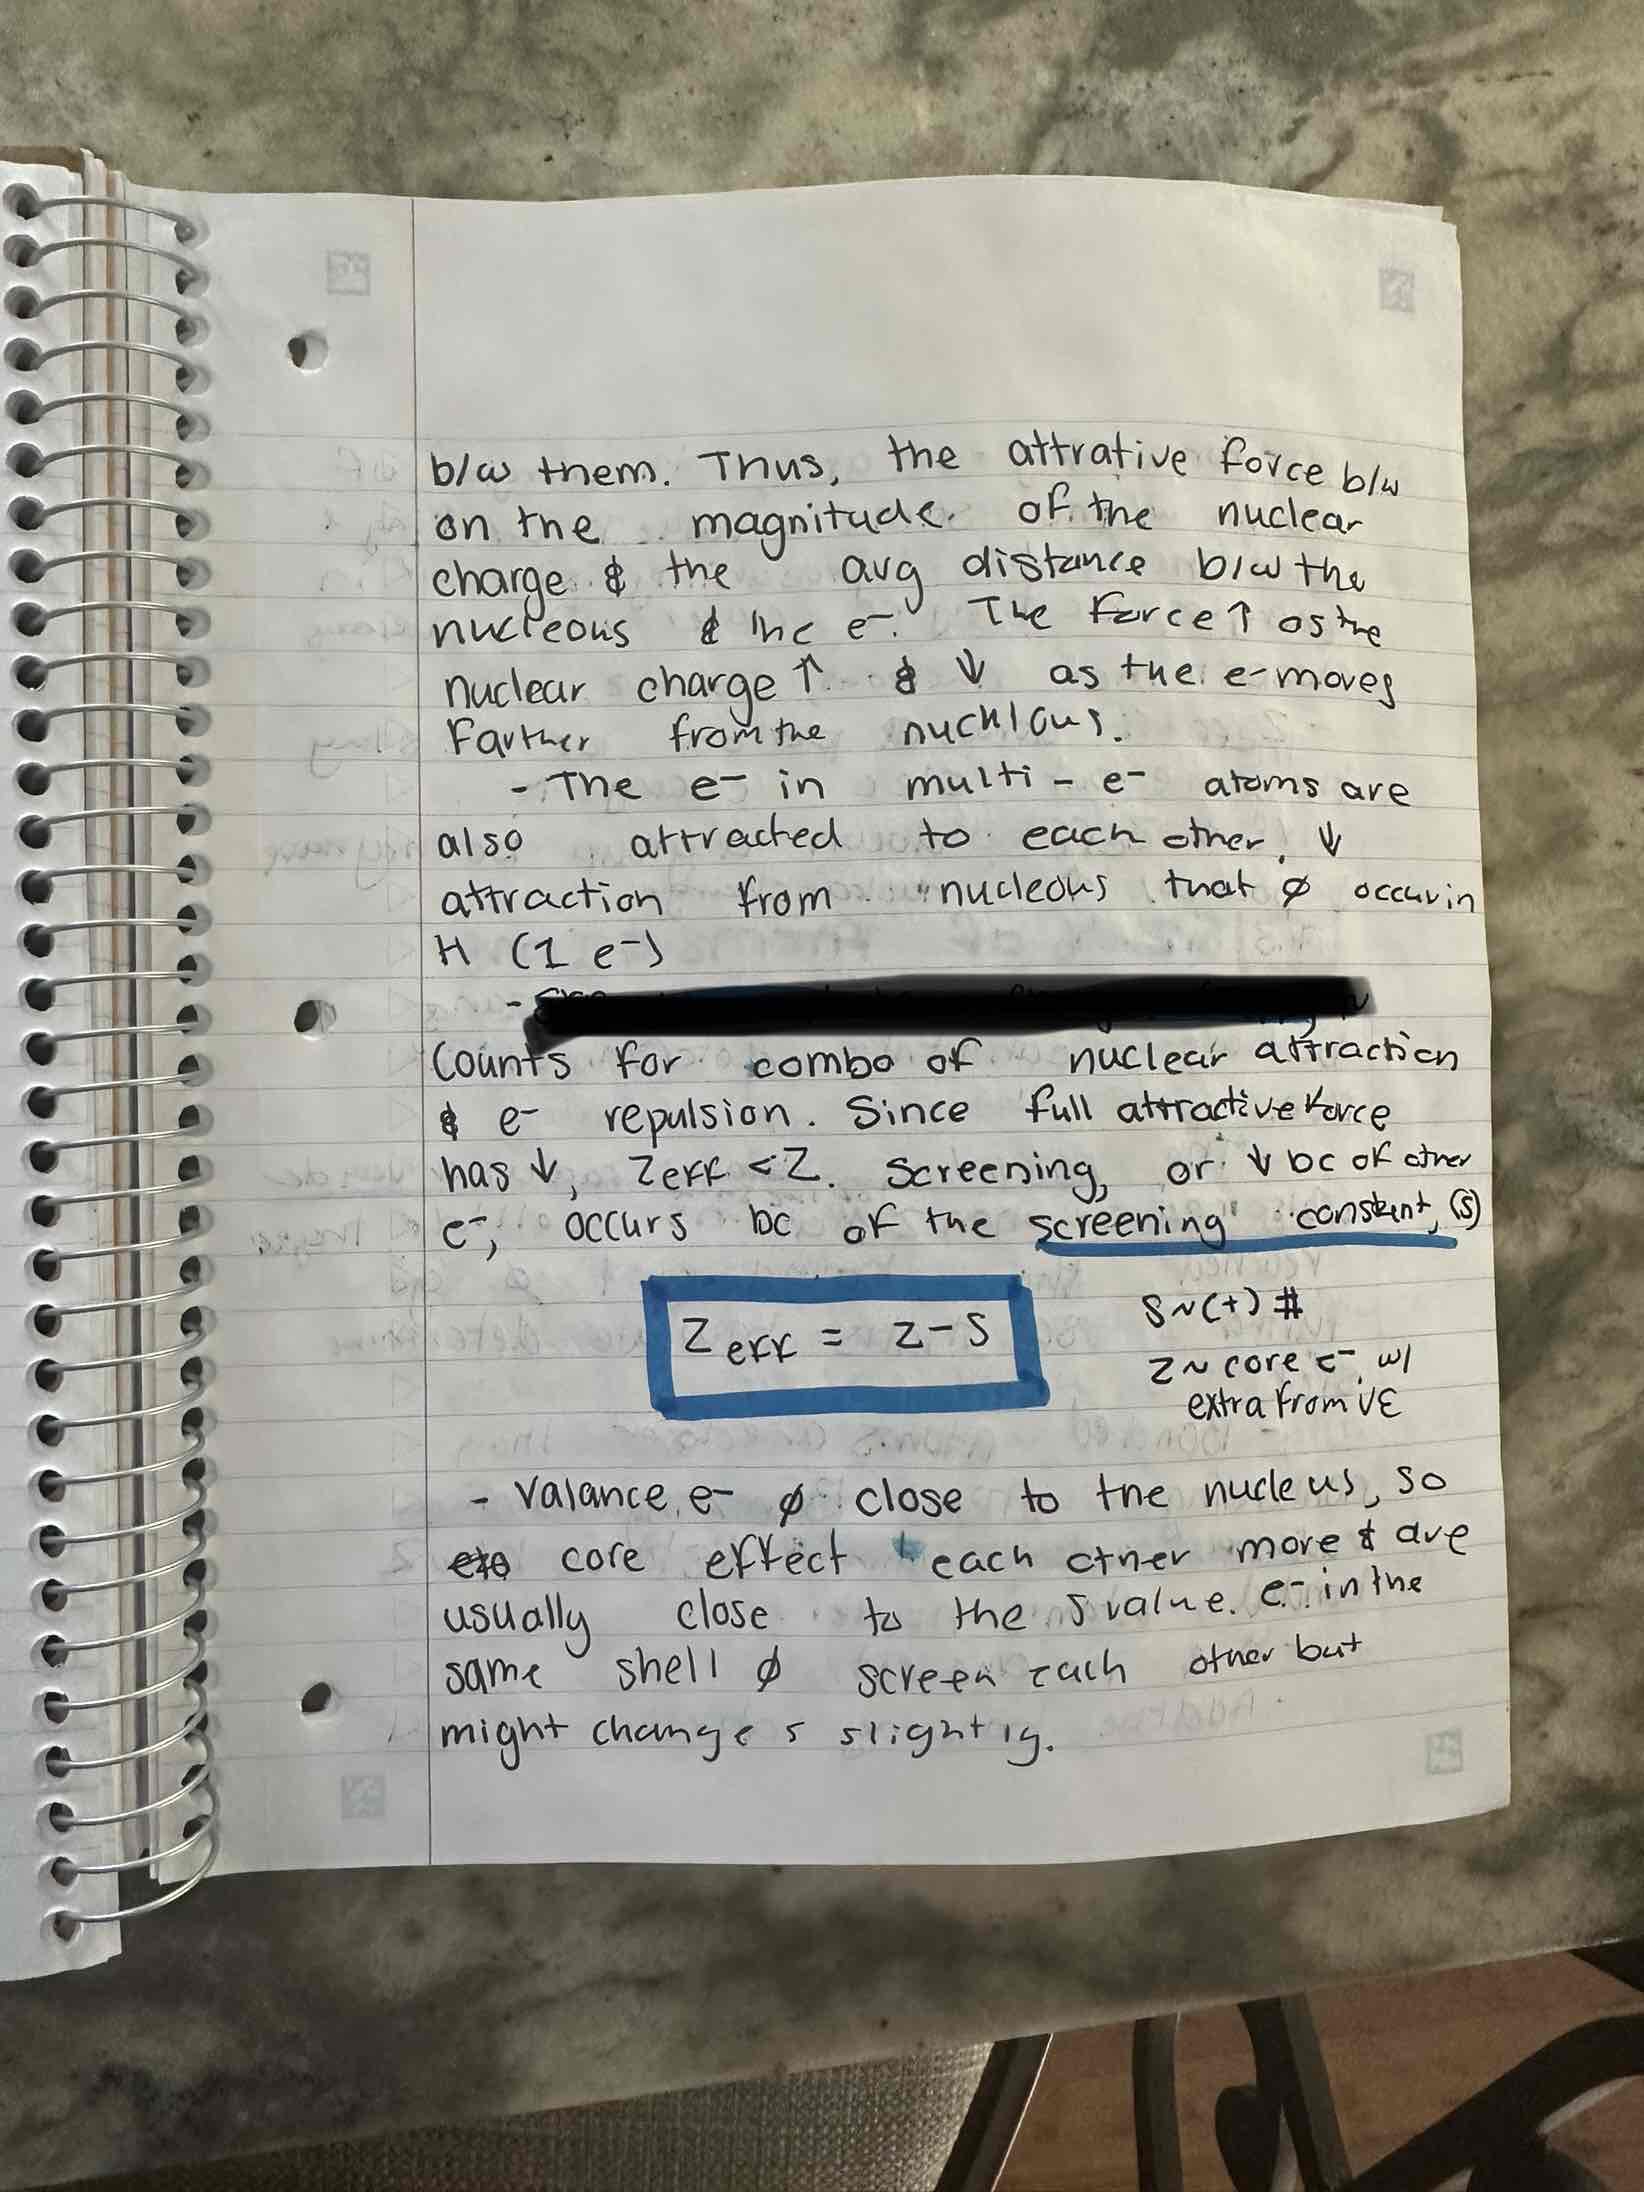 b/w them. Thus, the attrative force b/w
on the magnitude of the nuclear
charge & the avg distance b/w the
nucleous & the e-. The force ↑ as the
nuclear charge ↑ & ↓ as the e- moves
farther from the
- The e- in multi - e- atoms are
also attracted to each other, ↓
attraction from nucleous that ∅ occur in
H (1 e-)
-
Counts for combo of nuclear attraction
& e- repulsion. Since full attractive force
has ↓, Zeff < Z. Screening, or ↓ bc of other
e-, occurs bc of the screening constent, (s)
Zeff = Z - S
S ~ (+) #
Z ~ core e- w/
extra from VE
- Valance e- ∅ close to the nucleus, so
core effect each other more & are
usually close to the S value. e- in the
same shell ∅ screen each other but
might change s slightly.